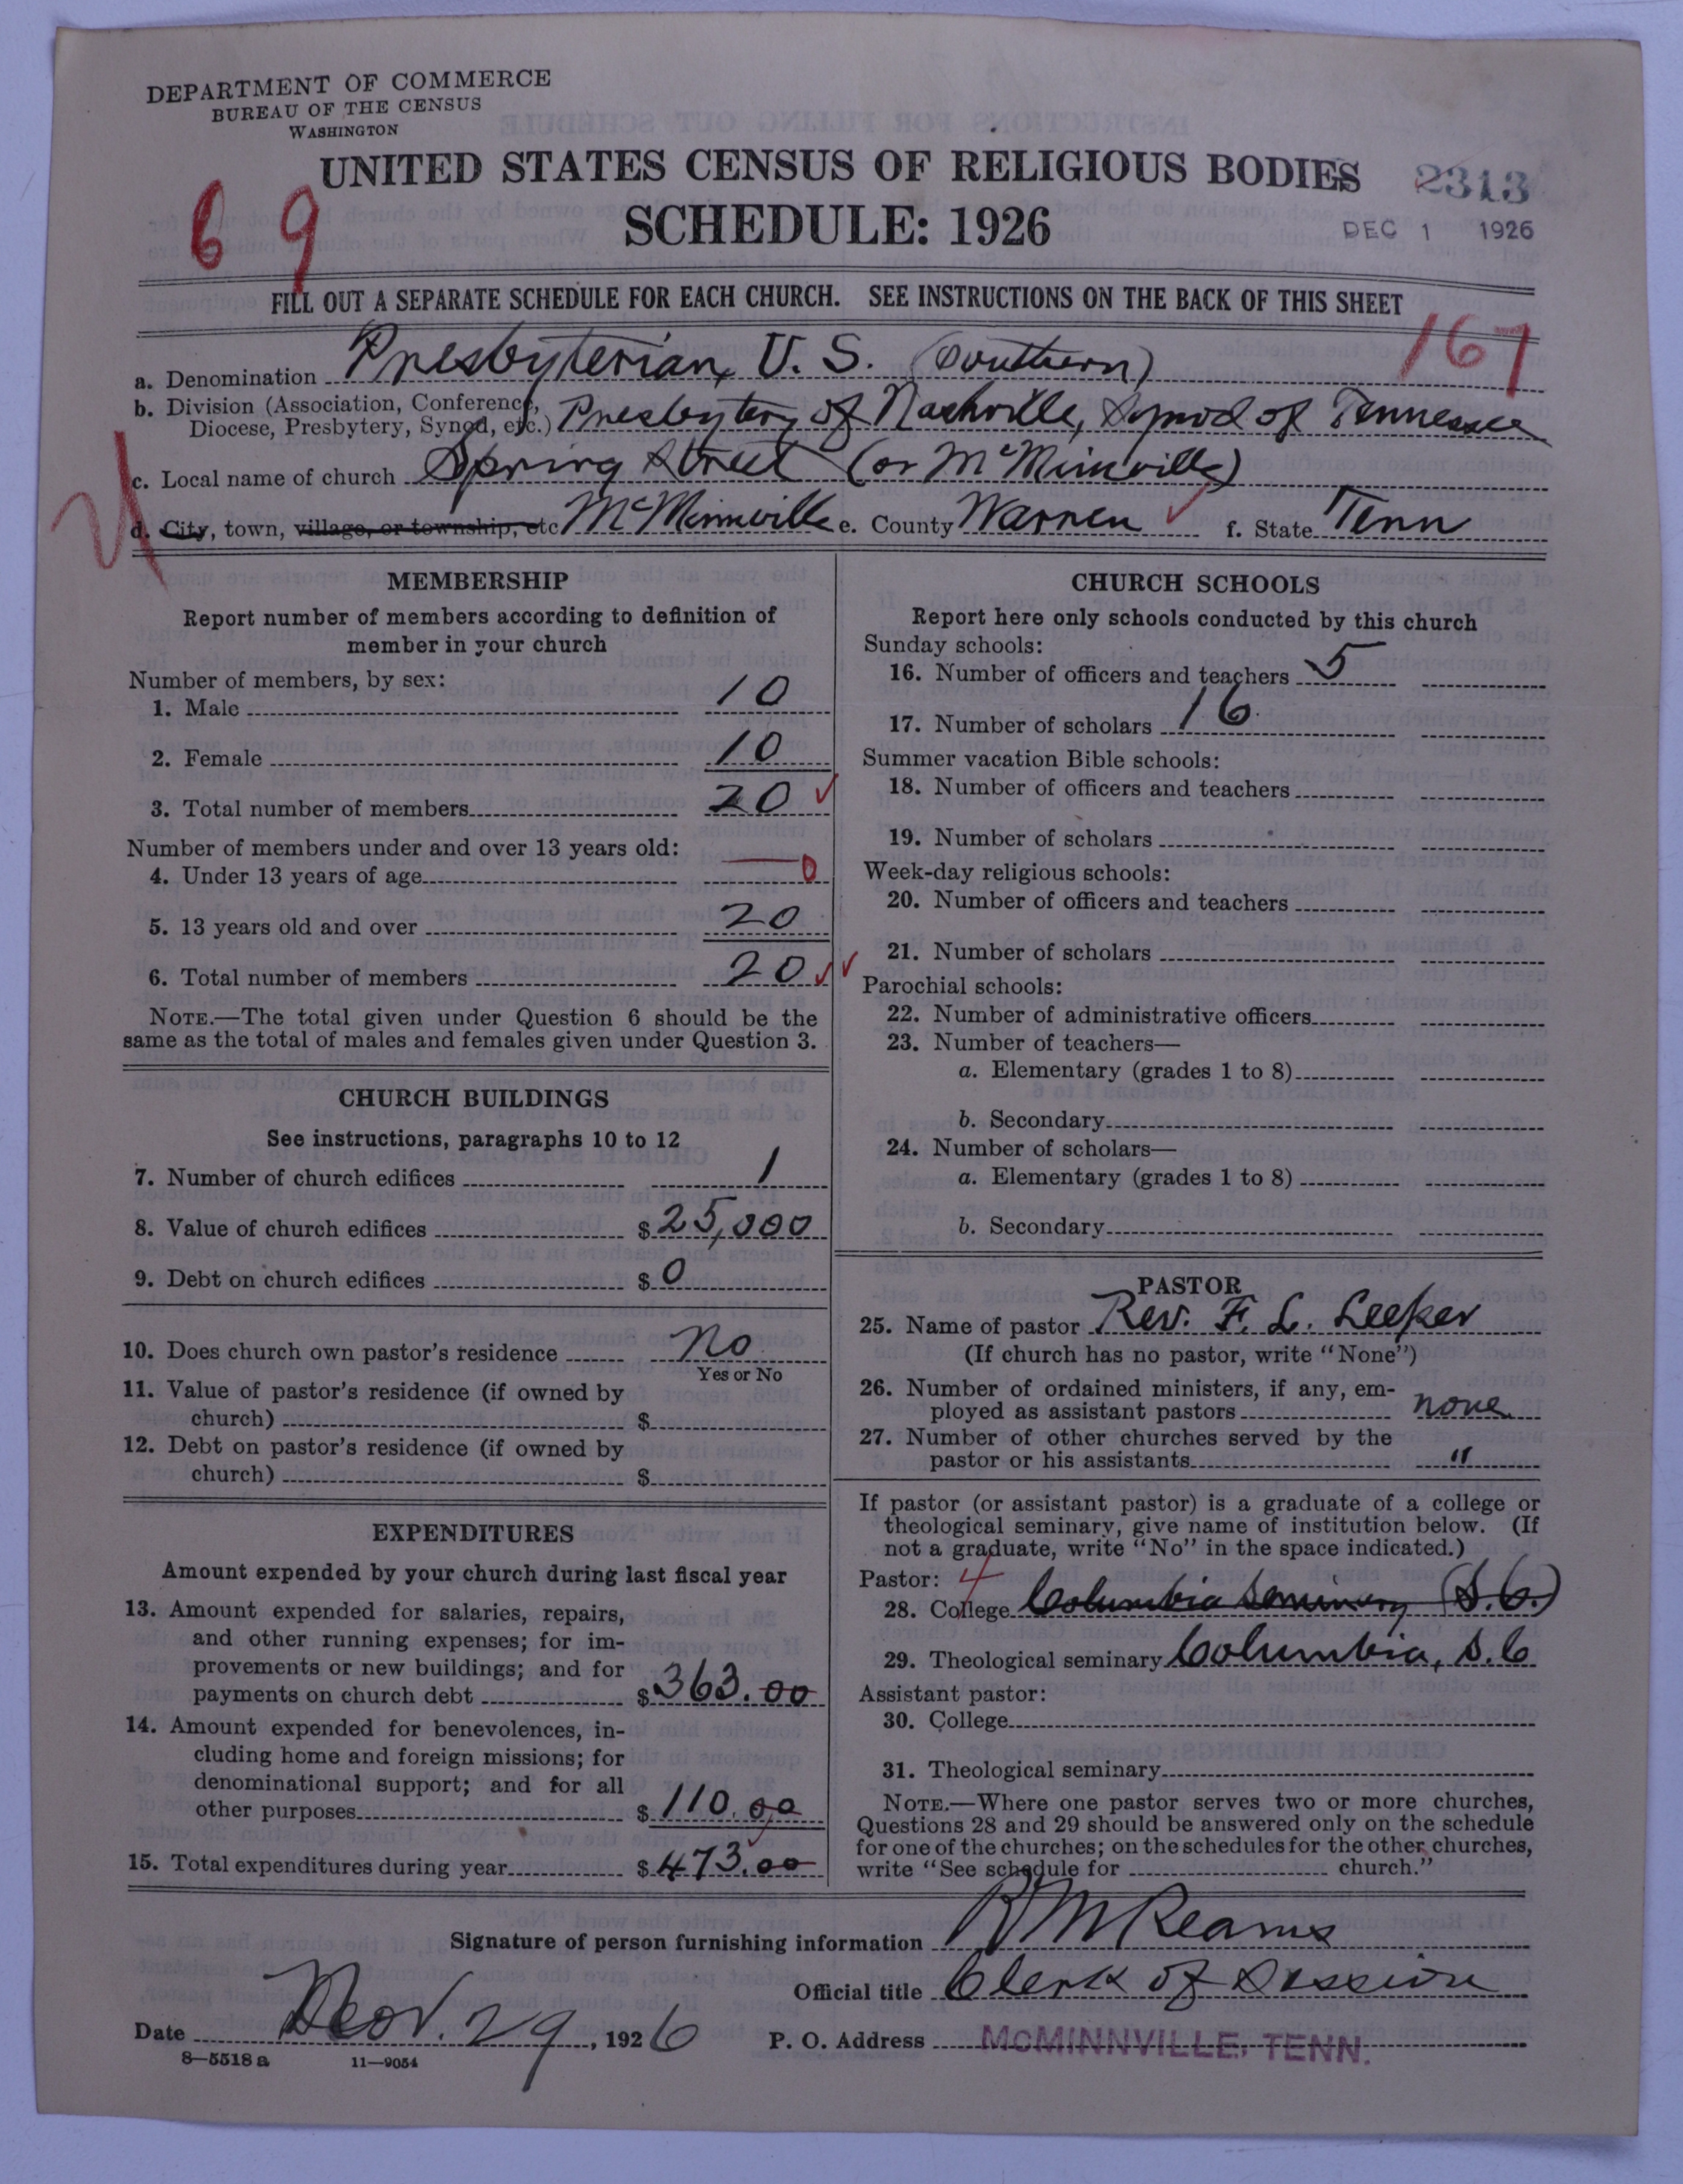 DEPARTMENT OF COMMERCE
BUREAU OF THE CENSUS
WASHINGTON
UNITED STATES CENSUS OF RELIGIOUS BODIES
2313
SCHEDULE: 1926
DEC 1 1926
6 9
FILL OUT A SEPARATE SCHEDULE FOR EACH CHURCH. SEE INSTRUCTIONS ON THE BACK OF THIS SHEET
167
a. Denomination Presbyterian, U. S. (Southern)
b. Division (Association, Conference,
Diocese, Presbytery, Synod, etc.) Presbytery of Nashville, Synod of Tennessee
c. Local name of church Spring Street (or McMinnville)
d. City, town, village, or township, etc McMinnville e. County Warren ✓ f. State Tenn
MEMBERSHIP
Report number of members according to definition of
member in your church
Number of members, by sex:
1. Male 10
2. Female 10
3. Total number of members 20 ✓
Number of members under and over 13 years old:
4. Under 13 years of age — 0
5. 13 years old and over 20
6. Total number of members 20 ✓✓
NOTE.—The total given under Question 6 should be the
same as the total of males and females given under Question 3.
CHURCH BUILDINGS
See instructions, paragraphs 10 to 12
7. Number of church edifices 1
8. Value of church edifices $ 25,000
9. Debt on church edifices $ 0
10. Does church own pastor's residence No
Yes or No
11. Value of pastor's residence (if owned by
church) $
12. Debt on pastor's residence (if owned by
church) $
EXPENDITURES
Amount expended by your church during last fiscal year
13. Amount expended for salaries, repairs,
and other running expenses; for im-
provements or new buildings; and for
payments on church debt $ 363.00
14. Amount expended for benevolences, in-
cluding home and foreign missions; for
denominational support; and for all
other purposes $ 110.00
15. Total expenditures during year $ 473.00
CHURCH SCHOOLS
Report here only schools conducted by this church
Sunday schools:
16. Number of officers and teachers 5
17. Number of scholars 16
Summer vacation Bible schools:
18. Number of officers and teachers
19. Number of scholars
Week-day religious schools:
20. Number of officers and teachers
21. Number of scholars
Parochial schools:
22. Number of administrative officers
23. Number of teachers—
a. Elementary (grades 1 to 8)
b. Secondary
24. Number of scholars—
a. Elementary (grades 1 to 8)
b. Secondary
PASTOR
25. Name of pastor Rev. F. L. Leeper
(If church has no pastor, write "None")
26. Number of ordained ministers, if any, em-
ployed as assistant pastors none
27. Number of other churches served by the
pastor or his assistants "
If pastor (or assistant pastor) is a graduate of a college or
theological seminary, give name of institution below. (If
not a graduate, write "No" in the space indicated.)
Pastor: 4
28. College Columbia Seminary (S.C.)
29. Theological seminary Columbia, S.C
Assistant pastor:
30. College
31. Theological seminary
NOTE.—Where one pastor serves two or more churches,
Questions 28 and 29 should be answered only on the schedule
for one of the churches; on the schedules for the other churches,
write "See schedule for church."
Signature of person furnishing information R M Reams
Official title Clerk of Session
Date Nov. 29, 1926 P. O. Address MCMINNVILLE, TENN.
8—5518 a 11—9054